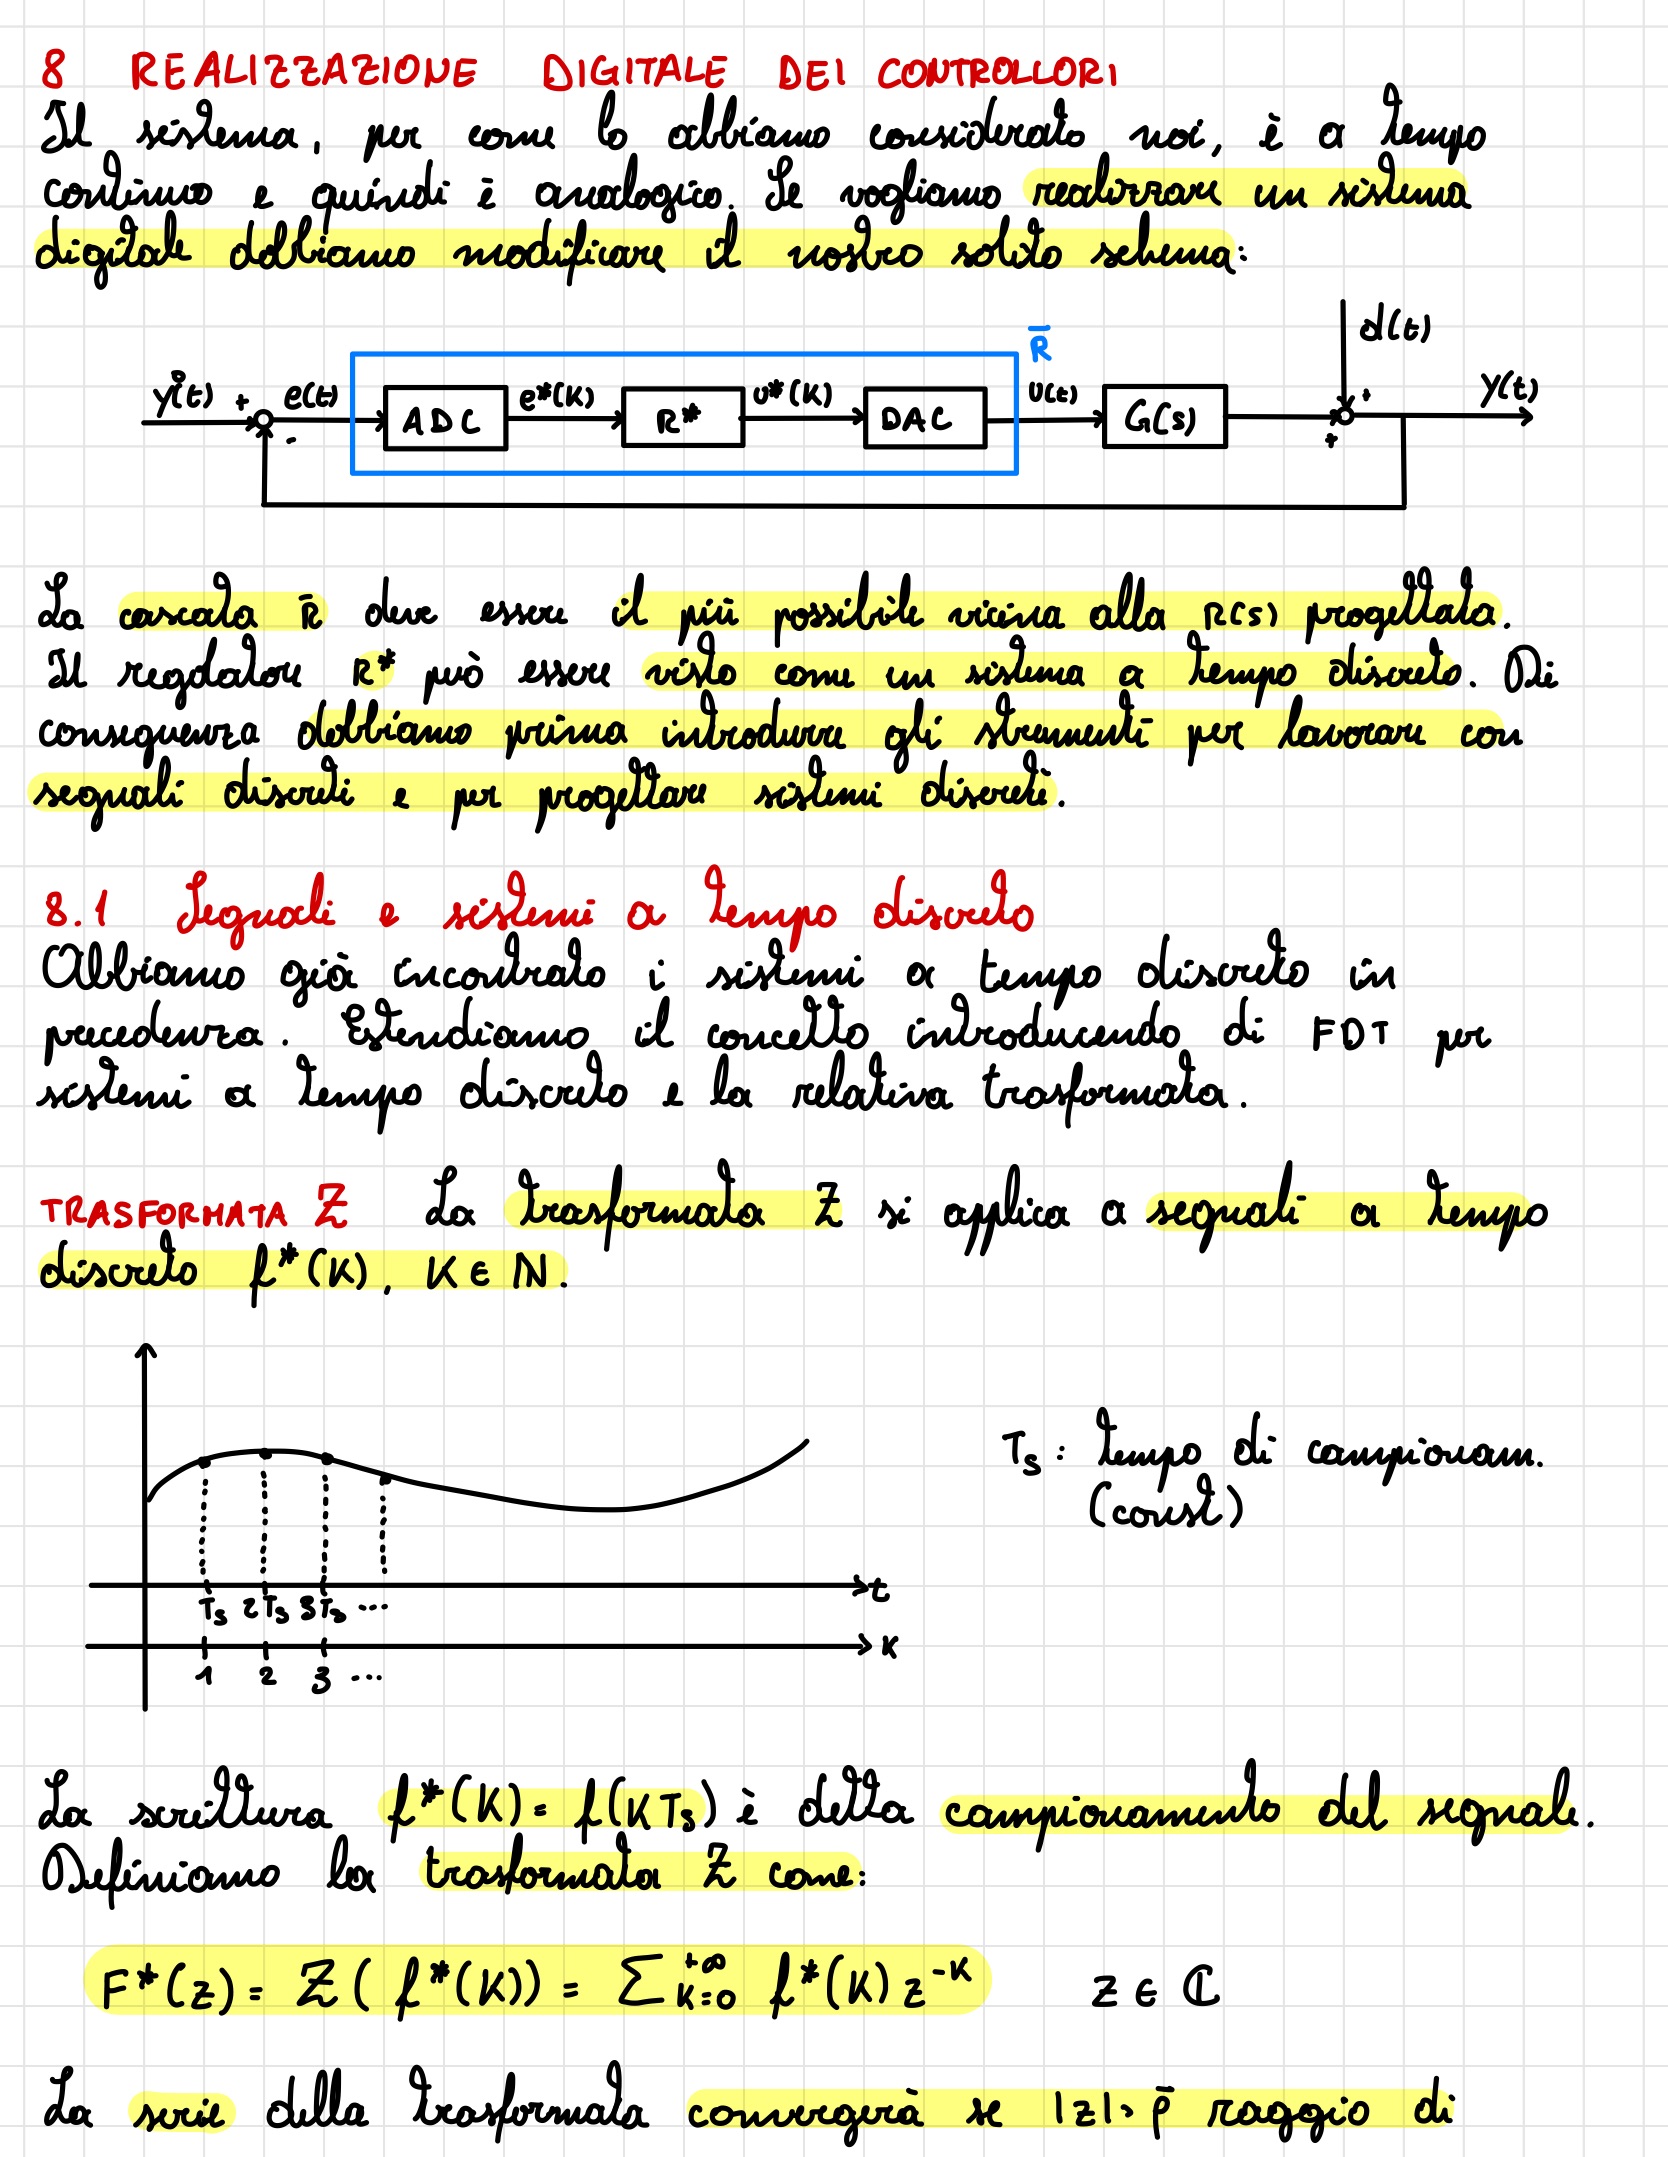 8 REALIZZAZIONE DIGITALE DEI CONTROLLORI
Il sistema, per come lo abbiamo considerato noi, è a tempo
continuo e quindi è analogico. Se vogliamo realizzare un sistema
digitale dobbiamo modificare il nostro solito schema:
R̄
d(t)
y°(t) + e(t) ADC e*(K) R* u*(K) DAC u(t) G(s) + y(t)
- +
La cascata R̄ deve essere il più possibile vicina alla R(s) progettata.
Il regolatore R* può essere visto come un sistema a tempo discreto. Di
conseguenza dobbiamo prima introdurre gli strumenti per lavorare con
segnali discreti e per progettare sistemi discreti.
8.1 Segnali e sistemi a tempo discreto
Abbiamo già incontrato i sistemi a tempo discreto in
precedenza. Estendiamo il concetto introducendo di FDT per
sistemi a tempo discreto e la relativa trasformata.
TRASFORMATA Z La trasformata Z si applica a segnali a tempo
discreto f*(K), K ∈ ℕ.
Ts: tempo di campionam.
(cost)
t
Ts 2Ts 3Ts ...
K
1 2 3 ...
La scrittura f*(K) = f(KTs) è detta campionamento del segnale.
Definiamo la trasformata Z come:
F*(z) = Z( f*(K)) = ∑ +∞ K=0 f*(K) z^-K z ∈ ℂ
La serie della trasformata convergerà se |z|> ρ̄ raggio di